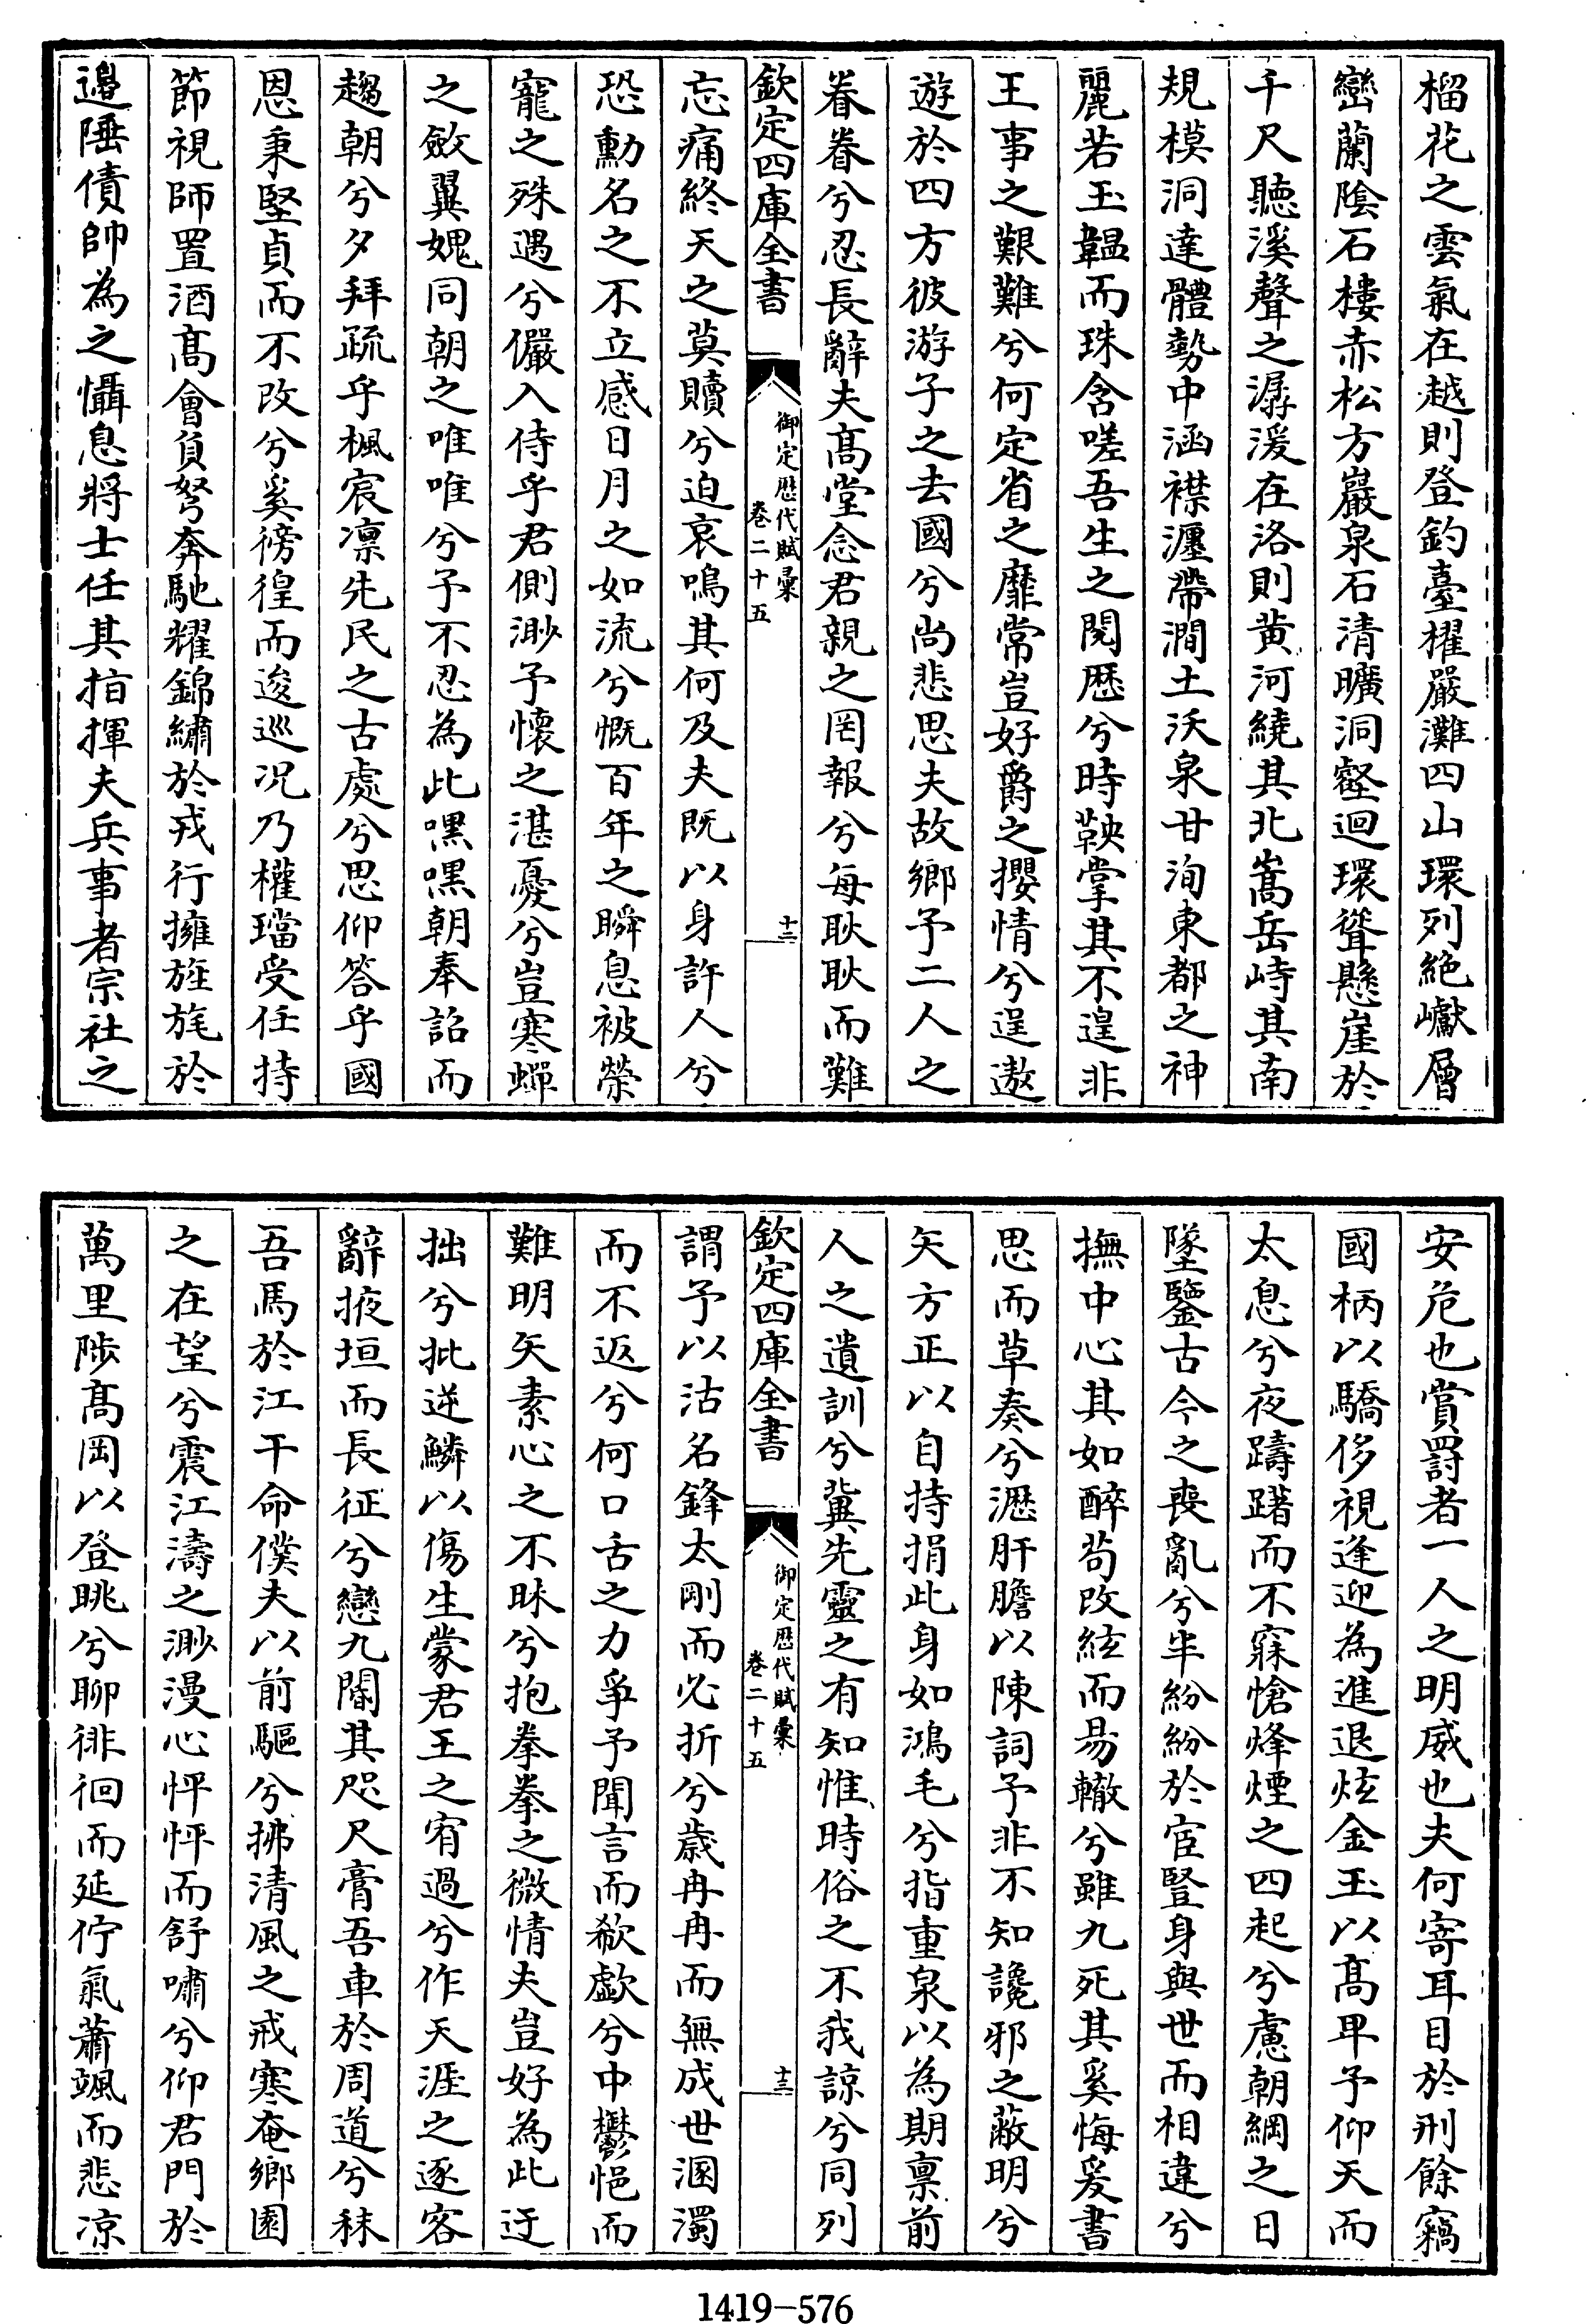 榴花之雲氣在越則登釣臺櫂嚴灘四山環列絶巘層
巒蘭陰石樓赤松方巖泉石清曠洞壑迴環聳懸崖於
千尺聽溪聲之潺湲在洛則黄河繞其北嵩岳峙其南
規模洞達體勢中涵襟瀍帶澗土沃泉甘洵東都之神
麗若玉韞而珠含嗟吾生之閱歴兮時鞅掌其不遑非
王事之艱難兮何定省之靡常豈好爵之攖情兮逞遨
遊於四方彼游子之去國兮尚悲思夫故鄉予二人之
眷眷兮忍長辭夫髙堂念君親之罔報兮每耿耿而難
欽定四庫全書
御定歴代賦彙
卷二十五
十二
忘痛終天之莫贖兮迫哀鳴其何及夫既以身許人兮
恐勳名之不立感日月之如流兮慨百年之瞬息被榮
寵之殊遇兮儼入侍乎君側渺予懷之湛憂兮豈寒蟬
之斂翼媿同朝之唯唯兮予不忍為此嘿嘿朝奉詔而
趨朝兮夕拜疏乎楓宸凛先民之古處兮思仰答乎國
恩秉堅貞而不改兮奚徬徨而逡巡况乃權璫受任持
節視師置酒髙會負弩奔馳耀錦繡於戎行擁旌旄於
邉陲債帥為之懾息將士任其指揮夫兵事者宗社之
安危也賞罰者一人之明威也夫何寄耳目於刑餘竊
國柄以驕侈視逢迎為進退炫金玉以髙卑予仰天而
太息兮夜躊躇而不寐愴烽煙之四起兮慮朝綱之日
墜鑒古今之喪亂兮半紛紛於宦豎身與世而相違兮
撫中心其如醉苟改絃而易轍兮雖九死其奚悔爰書
思而草奏兮瀝肝膽以陳詞予非不知讒邪之蔽明兮
矢方正以自持捐此身如鴻毛兮指重泉以為期禀前
人之遺訓兮冀先靈之有知惟時俗之不我諒兮同列
欽定四庫全書
御定歴代賦彙
卷二十五
十三
謂予以沽名鋒太剛而必折兮歲冉冉而無成世溷濁
而不返兮何口舌之力爭予聞言而欷歔兮中鬱悒而
難明矢素心之不昧兮抱拳拳之微情夫豈好為此迂
拙兮批逆鱗以傷生蒙君王之宥過兮作天涯之逐客
辭掖垣而長征兮戀九閽其咫尺膏吾車於周道兮秣
吾馬於江干命僕夫以前驅兮拂清風之戒寒奄鄉園
之在望兮震江濤之渺漫心怦怦而舒嘯兮仰君門於
萬里陟髙岡以登眺兮聊徘徊而延佇氣蕭颯而悲凉
1419-576